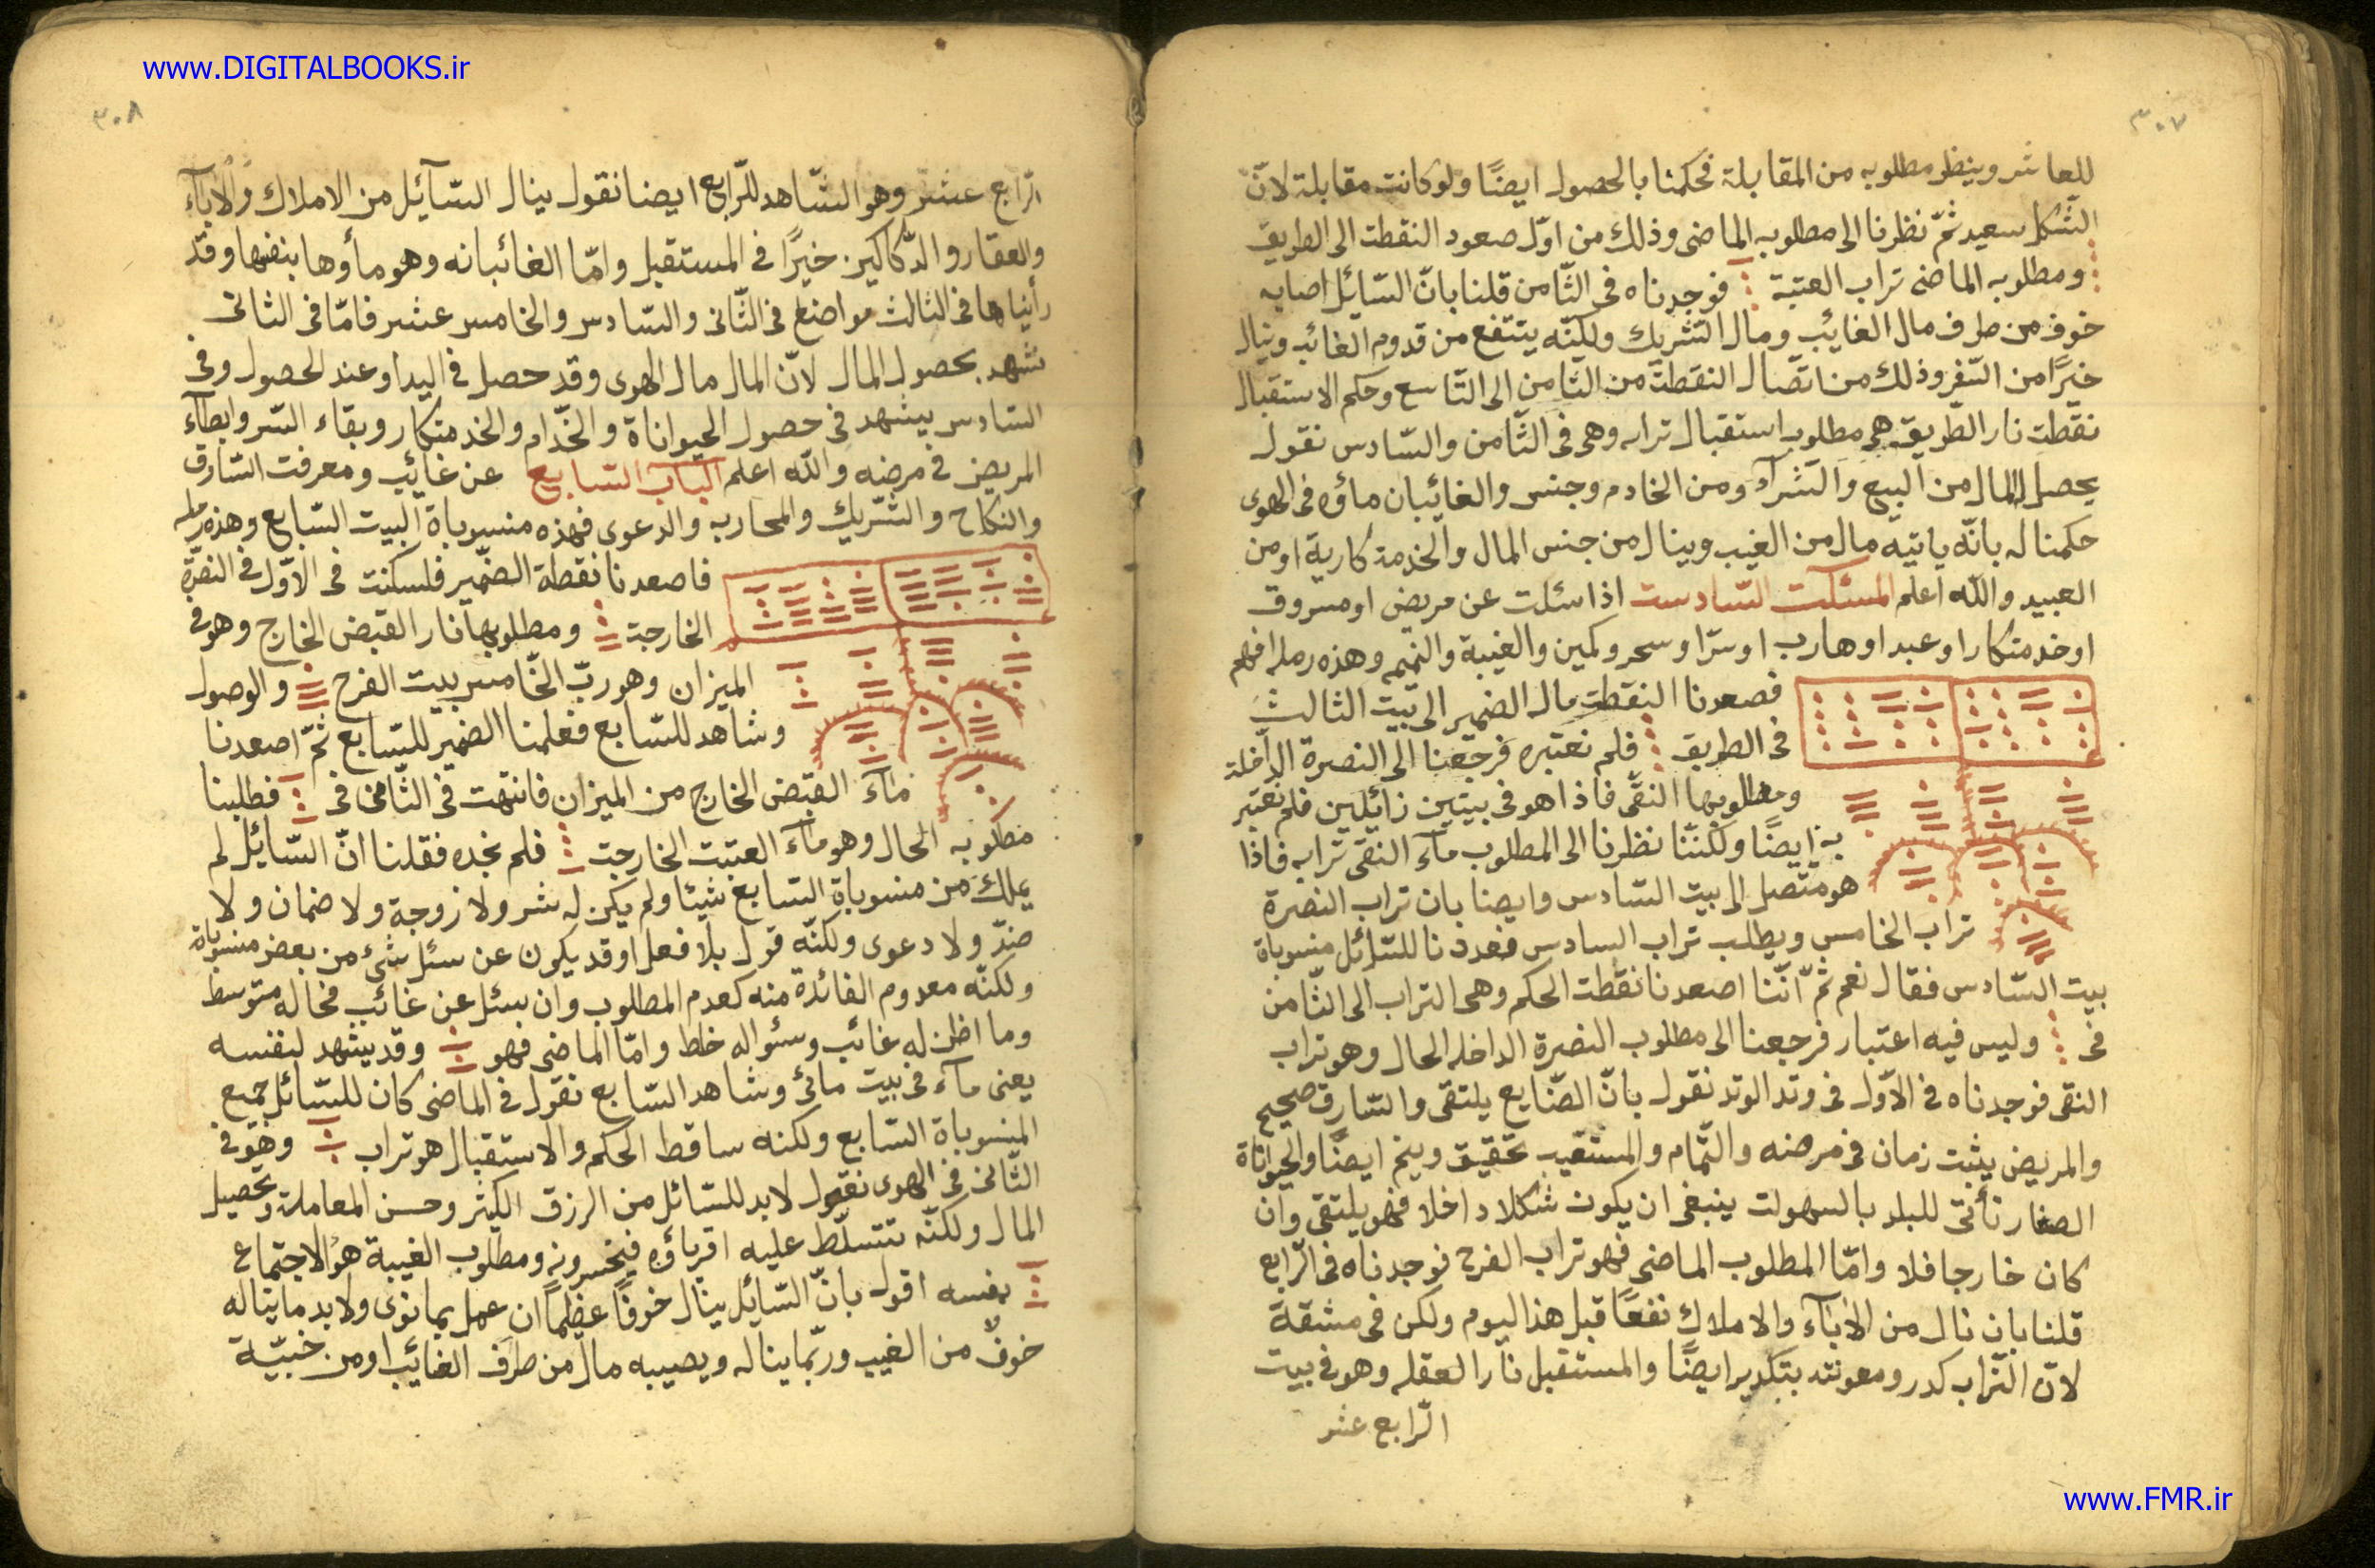 www.DIGITALBOOKS.ir
٣٠٧
للعاشر وينظر مطلوبه من المقابلة فحكمنا بالحصول ايضًا ولو كانت مقابلة لانّ
الشّكل سعيد ثمّ نظرنا الى مطلوبه الماضى وذلك من اوّل صعود النقطت الى الطريق
ومطلوبه الماضى تراب العتبة فوجدناه فى الثّامن قلنا بانّ السّائل اصابه
خوف من طرف مال الغايب ومال التشريك ولكنّه ينتفع من قدوم الغائب وينال
خيرًا من السّفر وذلك من اتّصال النقطت من الثّامن الى التّاسع وحكم الاستقبال
نقطت نار الطّريق هى مطلوب استقبال ترابه وهى فى الثّامن والسّادس نقول
يحصل المال من البيع والشرآء ومن الخادم وجنس والغائبان ماؤه فى الهوى
حكمنا له بانّه ياتيه مال من الغيب وينال من جنس المال والخدمة كارية او من
العبيد والله اعلم المسئلت السّادست اذا سئلت عن مريض او مسروق
او خدمتكار او عبد او هارب او سرّ او سحر وكمين والغيبة والنميم وهذه رمله افهم
فصعدنا النقطت مال الضمير الى بيت الثالث
فى الطريق فلم نعتبره فرجعنا الى النصرة الدّاخلة
ومطلوبها النقى فاذا هو فى بيتين زائلين فلم نعتبر
به ايضًا ولكنّنا نظرنا الى المطلوب مآء النقى ترابه فاذا
هو متّصل الى بيت السّادس وايضا بان تراب النصرة
تراب الخامس ويطلب تراب السادس فعددنا للسّائل منسوباة
بيت السّادس فقال نعم ثمّ انّنا اصعدنا نقطت الحكم وهى التراب الى الثّامن
فى وليس فيه اعتبار فرجعنا الى مطلوب النصرة الداخله الحال وهو تراب
النقى فوجدناه فى الاوّل فى وتد الوتد نقول بانّ الضّايع يلتقى والسّارق صحيح
والمريض يثبت زمان فى مرضه والتّمام والمستقيب تحقيق وينم ايضًا والحيواناة
الصغار تأتى للبلد بالسهولت ينبغى ان يكون شكلا داخلا فهو يلتقى وان
كان خارجا فلا وامّا المطلوب الماضى فهو تراب الفرح فوجدناه فى الرّابع
قلنا بان نال من الابآء والاملاك نفعًا قبل هذا اليوم ولكن فى مشقة
لانّ التّراب كدر ومعونته بتكدير ايضًا والمستقبل نار العقله وهو فى بيت
الرّابع عشر
٣٠٨
الرّابع عشر وهو الشّاهد للرّابع ايضا نقول ينال السّآئل من الاملاك والابآء
والعقار والدّكاكين خيرًا فى المستقبل وامّا الغائبانه وهو مأوها بنفسها وقد
رأيناها فى الثالث مواضع فى الثّانى والسّادس والخامس عشر فامّا فى الثانى
تشهد بحصول المال لانّ المال مال الهوى وقد حصل فى اليد او عند الحصول وفى
السّادس يشهد فى حصول الحيواناة والخدّام والخدمتكار وبقاء السّر وابطآء
المريض فى مرضه والله اعلم الباب السّابع عن غائب ومعرفت السّارق
والنكاح والشّريك والمحاربه والدعوى فهذه منسوباة البيت السّابع وهذه رمله
فاصعدنا نقطة الضّمير فلسكنت فى الاوّل فى النصرة
الخارجت ومطلوبها نار القبض الخارج وهو فى
الميزان وهو ربّ الخامس بيت الفرح والوصول
وشاهد للسّابع فعلمنا الضمير للسّابع ثمّ اصعدنا
مآء القبض الخارج من الميزان فانتهت فى الثّامن فى فطلبنا
مطلوبه الحال وهو مآء العتبت الخارجت فلم نجده فقلنا انّ السّائل لم
يملك من منسوباة السّابع شيئا ولم يكن له شر ولا زوجة ولا ضمان ولا
ضدّ ولا دعوى ولكنّه قول بلا فعل او قد يكون عن سئل شئ من بعض منسوباة
ولكنّه معدوم الفائدة منه كعدم المطلوب وان سئل عن غائب فحاله متوسط
وما اظن له غائب وسئواله خلط وامّا الماضى فهو وقد يشهد لنفسه
يعنى مآء فى بيت مائى وشاهد السّابع نقول فى الماضى كان للسّائل جميع
المنسوباة السّابع ولكنه ساقط الحكم والاستقبال هو تراب وهو فى
الثّانى فى الهوى نقول لابد للسّائل من الرزق الكثير وحسن المعاملة وتحصيل
المال ولكنّه تتسلّط عليه اقرباؤه فيخسرونه ومطلوب الغيبة هو الاجتماع
بنفسه اقول بانّ السّائل ينال خوفًا عظيمًا ان عمل بما نوى ولابد ما يناله
خوفٌ من الغيب وربّما يناله ويصيبه مال من طرف الغائب او من خبيّة
www.FMR.ir